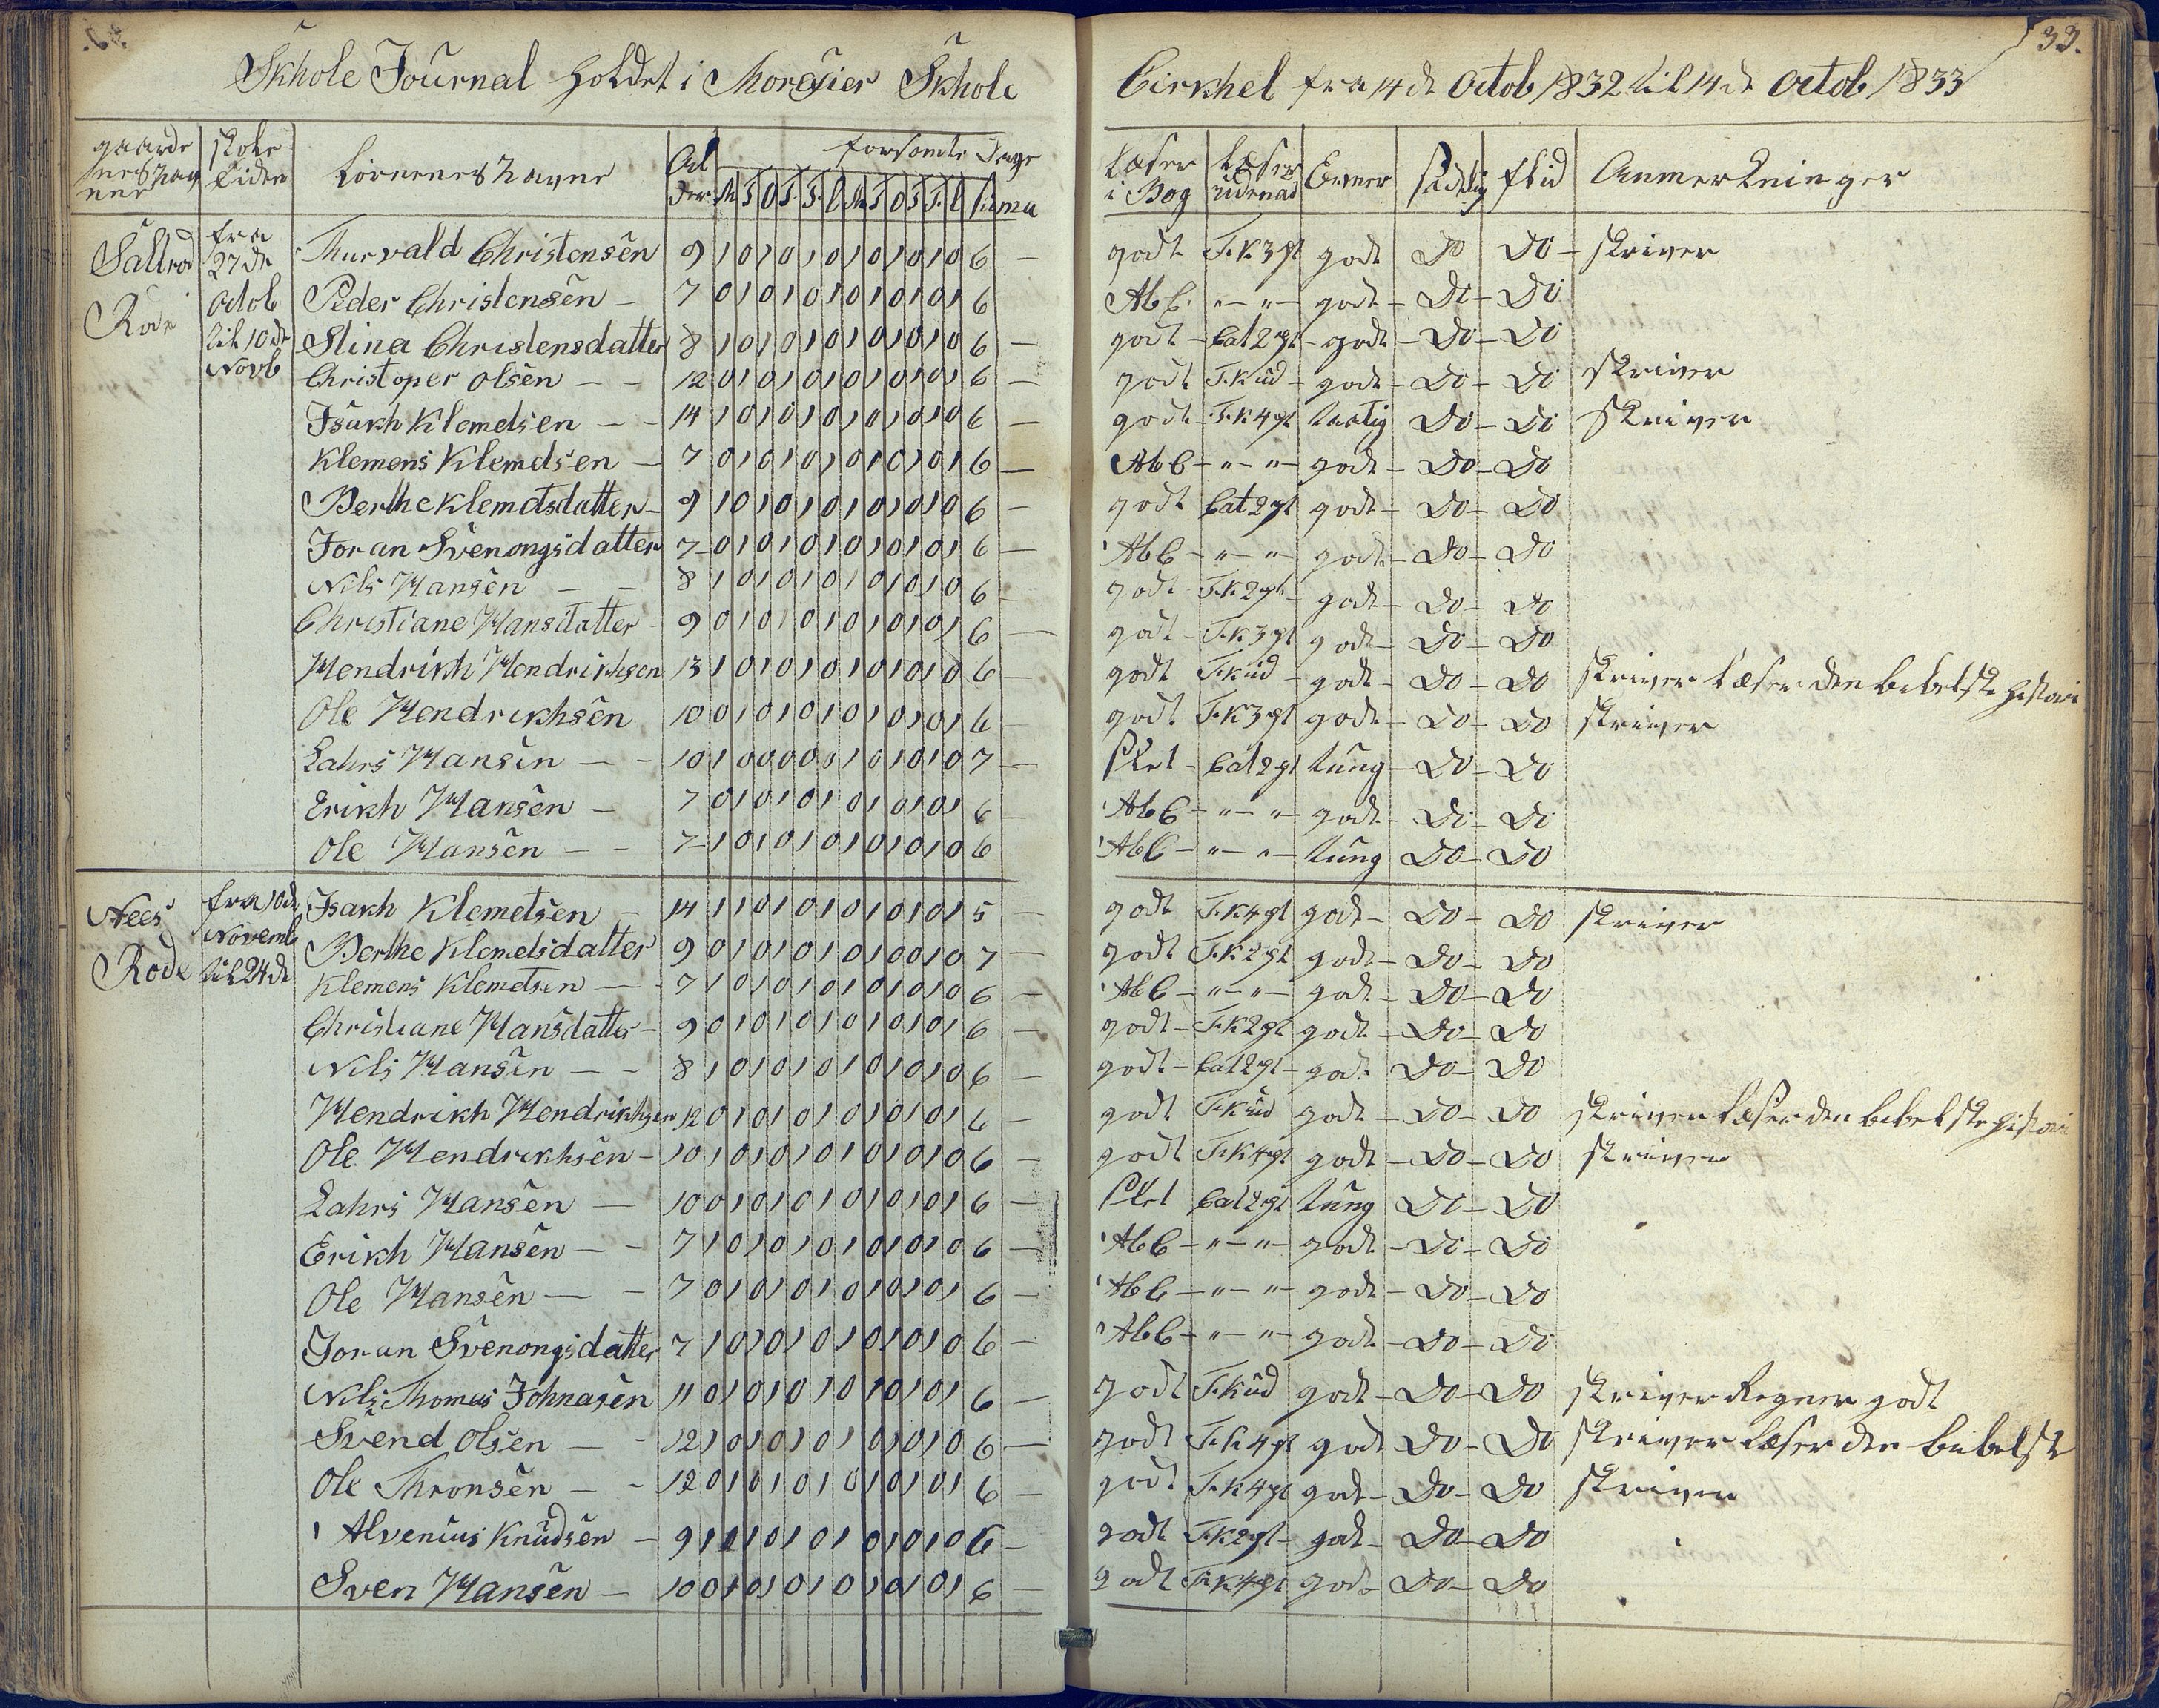 33.
Skhole Journal holdet i Skhole Cirkhel fra 14de Octob 1832 til 14de Octob 1833
gaarde nes nav ner | Skole Tiden | Børnenes navne | Al der | forsømte Dage | M T O T F L M T O T F L | Suma | Læser i Bog | Læser udenad | Evner | Sædelig | flid | Anmerkninger
Rode fra 27de Octob til 10de Novb
Thurvald Christensen 9 1 0 1 0 1 0 1 0 1 0 1 0 6 — godt T.K 3 pt godt Do Do — skriver
Peder Christensen — 7 0 1 0 1 0 1 0 1 0 1 0 1 6 Ab C. " — " — godt — Do — Do
Stina Christensdatter 8 1 0 1 0 1 0 1 0 1 0 1 0 6 — godt — Cat 2 pt — godt — Do — Do
Christoper Olsen — — 12 0 1 0 1 0 1 0 1 0 1 0 1 6 — godt T.K ud — godt — Do — Do skriver
Isakh Klemetsen — — 14 1 0 1 0 1 0 1 0 1 0 1 0 6 — godt — T.K 4 pt Do — Do skriver
Klemens Klemetsen — 7 0 1 0 1 0 1 0 1 0 1 0 1 6 — Ab C — " — " — godt — Do — Do
Berthe Klemetsdatter — 9 1 0 1 0 1 0 1 0 1 0 1 0 6 — godt Cat 2 pt godt — Do — Do
Joran Svenongsdatter 7 — 0 1 0 1 0 1 0 1 0 1 0 1 6 — Ab C — " — " — godt — Do — Do
Nils Hansen — — 8 1 0 1 0 1 0 1 0 1 0 1 0 6 — godt T.K 2 pt — godt — Do — Do
Christiane Hansdatter 9 0 1 0 1 0 1 0 1 0 1 0 1 6 — godt — T.K 3 pt godt — Do — Do
Hendrikh Hendrikhsen 13 1 0 1 0 1 0 1 0 1 0 1 0 6 — godt T.K ud — godt — Do — Do skriver Læser den bibelske histori
Ole Hendrikhsen 10 0 1 0 1 0 1 0 1 0 1 0 1 6 — godt T.K 3 pt godt — Do — Do skriver
Lahrs Hansen — — 10 1 0 0 0 0 0 1 0 1 0 1 0 7 — Slet — Cat 2 pt tung — Do — Do
Erikh Hansen — 7 0 1 0 1 0 1 0 1 0 1 0 1 6 — Ab C — " — " — godt — Do — Do
Ole Hansen — — 7 — 1 0 1 0 1 0 1 0 1 0 1 0 6 Ab C — " — " — tung Do — Do
Nees Rode fra 10de Novemb til 24de
Isakh Klemetsen — 14 1 1 0 1 0 1 0 1 0 1 0 1 5 — godt T.K 4 pt godt — Do — Do skriver
Berthe Klemetsdatter 9 0 1 0 1 0 1 0 1 0 0 1 0 7 — godt T.K 2 pt godt — Do — Do
Klemens Klemetsen — 7 1 0 1 0 1 0 1 0 1 0 1 0 6 — Ab C — " — " — godt — Do — Do
Christiane Hansdatter — 9 0 1 0 1 0 1 0 1 0 1 0 1 6 — godt — T.K 2 pt godt — Do — Do
Nils Hansen — — 8 1 0 1 0 1 0 1 0 1 0 1 0 6 — godt — Cat 2 pt — godt Do — Do
Hendrikh Hendrikhsen 12 0 1 0 1 0 1 0 1 0 1 0 1 6 — godt T.K ud godt — Do — Do skriver Læser den bibelske histori
Ole Hendrikhsen — 10 1 0 1 0 1 0 1 0 1 0 1 0 6 — godt T.K 4 pt godt — Do — Do skriver
Lahrs Hansen — 10 0 1 0 1 0 1 0 1 0 1 0 1 6 — Slet Cat 2 pt tung Do — Do
Erikh Hansen — — 7 1 0 1 0 1 0 1 0 1 0 1 0 6 — Ab C — " — " — godt — Do — Do
Ole Hansen — — 7 0 1 0 1 0 1 0 1 0 1 0 1 6 — Ab C — " — " — godt — Do — Do
Joran Svenongsdatter 7 1 0 1 0 1 0 1 0 1 0 1 0 6 — Ab C — " — " — godt — Do — Do
Nils Thomas Johnasen 11 0 1 0 1 0 1 0 1 0 1 0 1 6 — godt T.K ud godt — Do — Do skriver Regner godt
Svend Olsen — — 12 1 0 1 0 1 0 1 0 1 0 1 0 6 — godt T.K 4 pt godt Do — Do skriver Læser den bibelsk
Ole Thronsen — — 12 0 1 0 1 0 1 0 1 0 1 0 1 6 — godt T.K 4 pt godt — Do — Do skriver
Alvenius Knudsen — 9 1 0 1 0 1 0 1 0 1 0 1 0 6 — godt T.K 2 pt — godt — Do — Do
Sven Hansen — 10 0 1 0 1 0 1 0 1 0 1 0 1 6 — godt T.K 4 pt godt — Do — Do